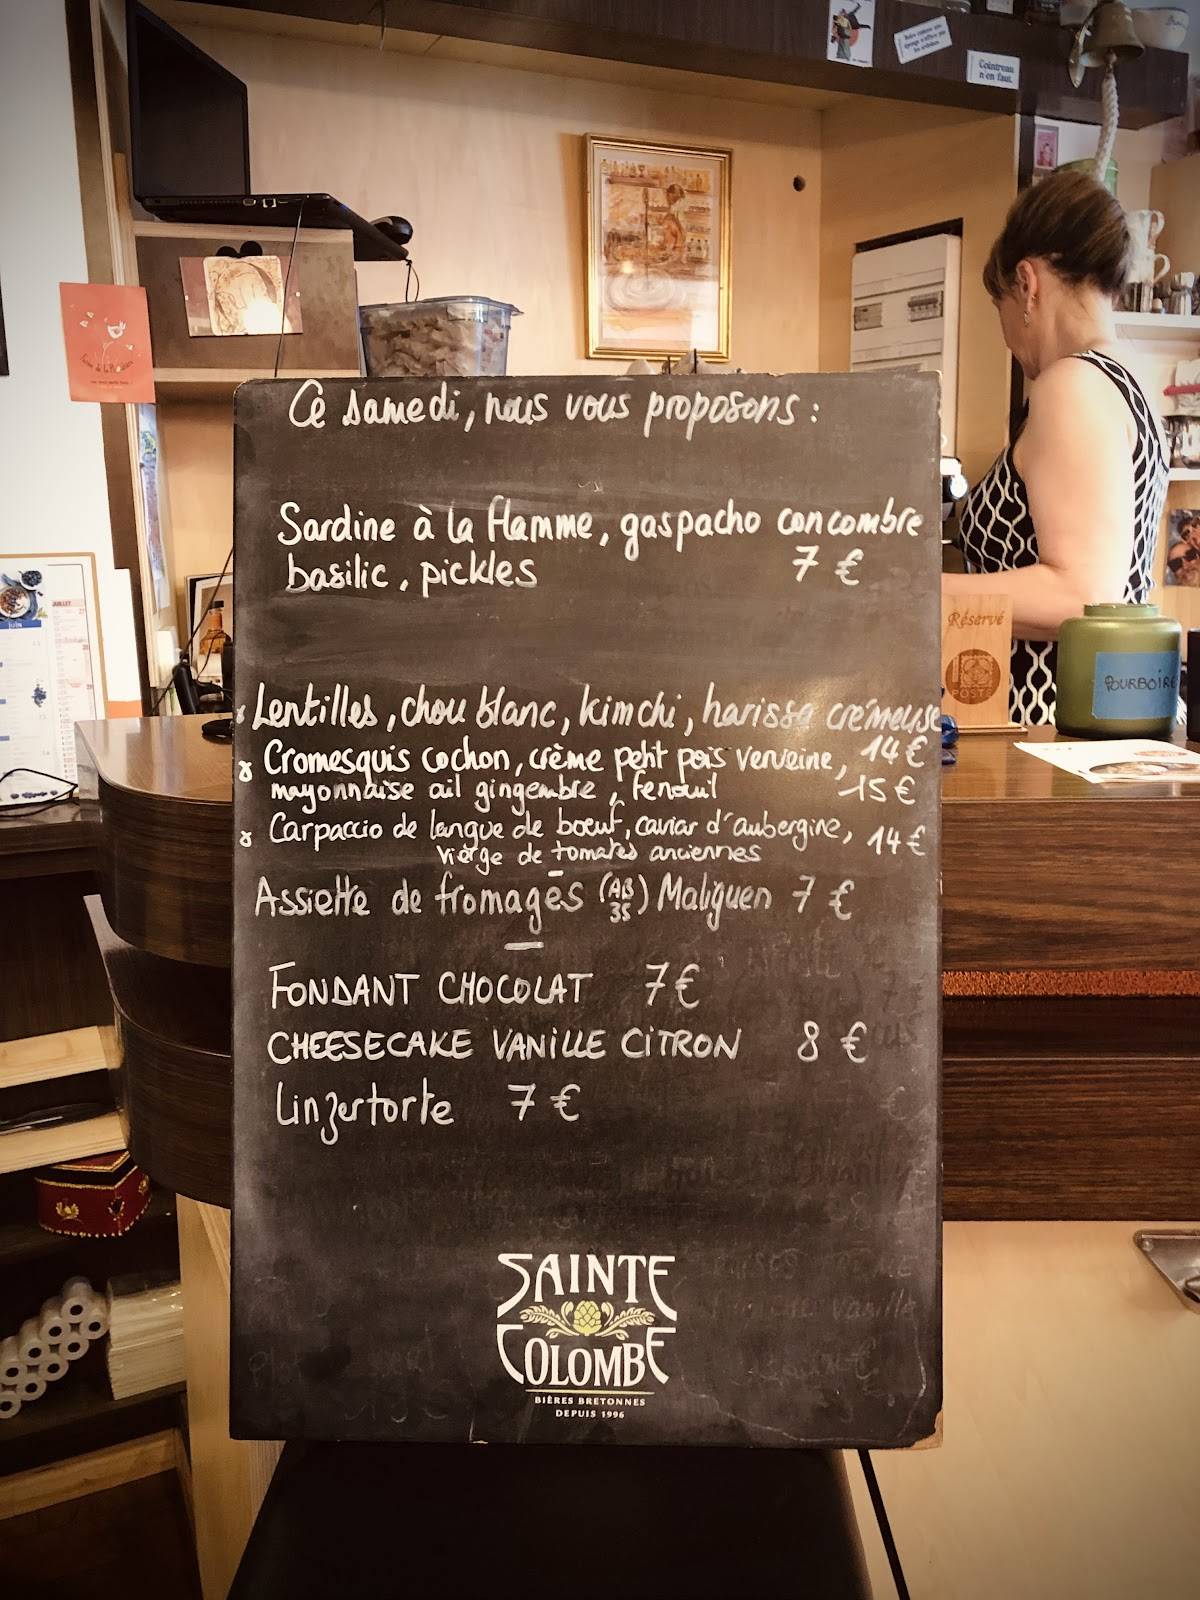 Cointreau
n'en faut.
Ce samedi, nous vous proposons :
Sardine à la flamme, gaspacho concombre
basilic, pickles 7 €
Lentilles, chou blanc, kimchi, harissa crémeuse
14 €
Cromesquis cochon, crème petit pois verveine,
mayonnaise ail gingembre, fenouil 15 €
Carpaccio de langue de boeuf, caviar d'aubergine, 14 €
vierge de tomates anciennes
Assiette de fromages (AB 35) Maliguen 7 €
FONDANT CHOCOLAT 7 €
CHEESECAKE VANILLE CITRON 8 €
Linzertorte 7 €
SAINTE
COLOMBE
BIÈRES BRETONNES
DEPUIS 1996
Réservé
POSTE
POURBOIRE
JUILLET
JUIN